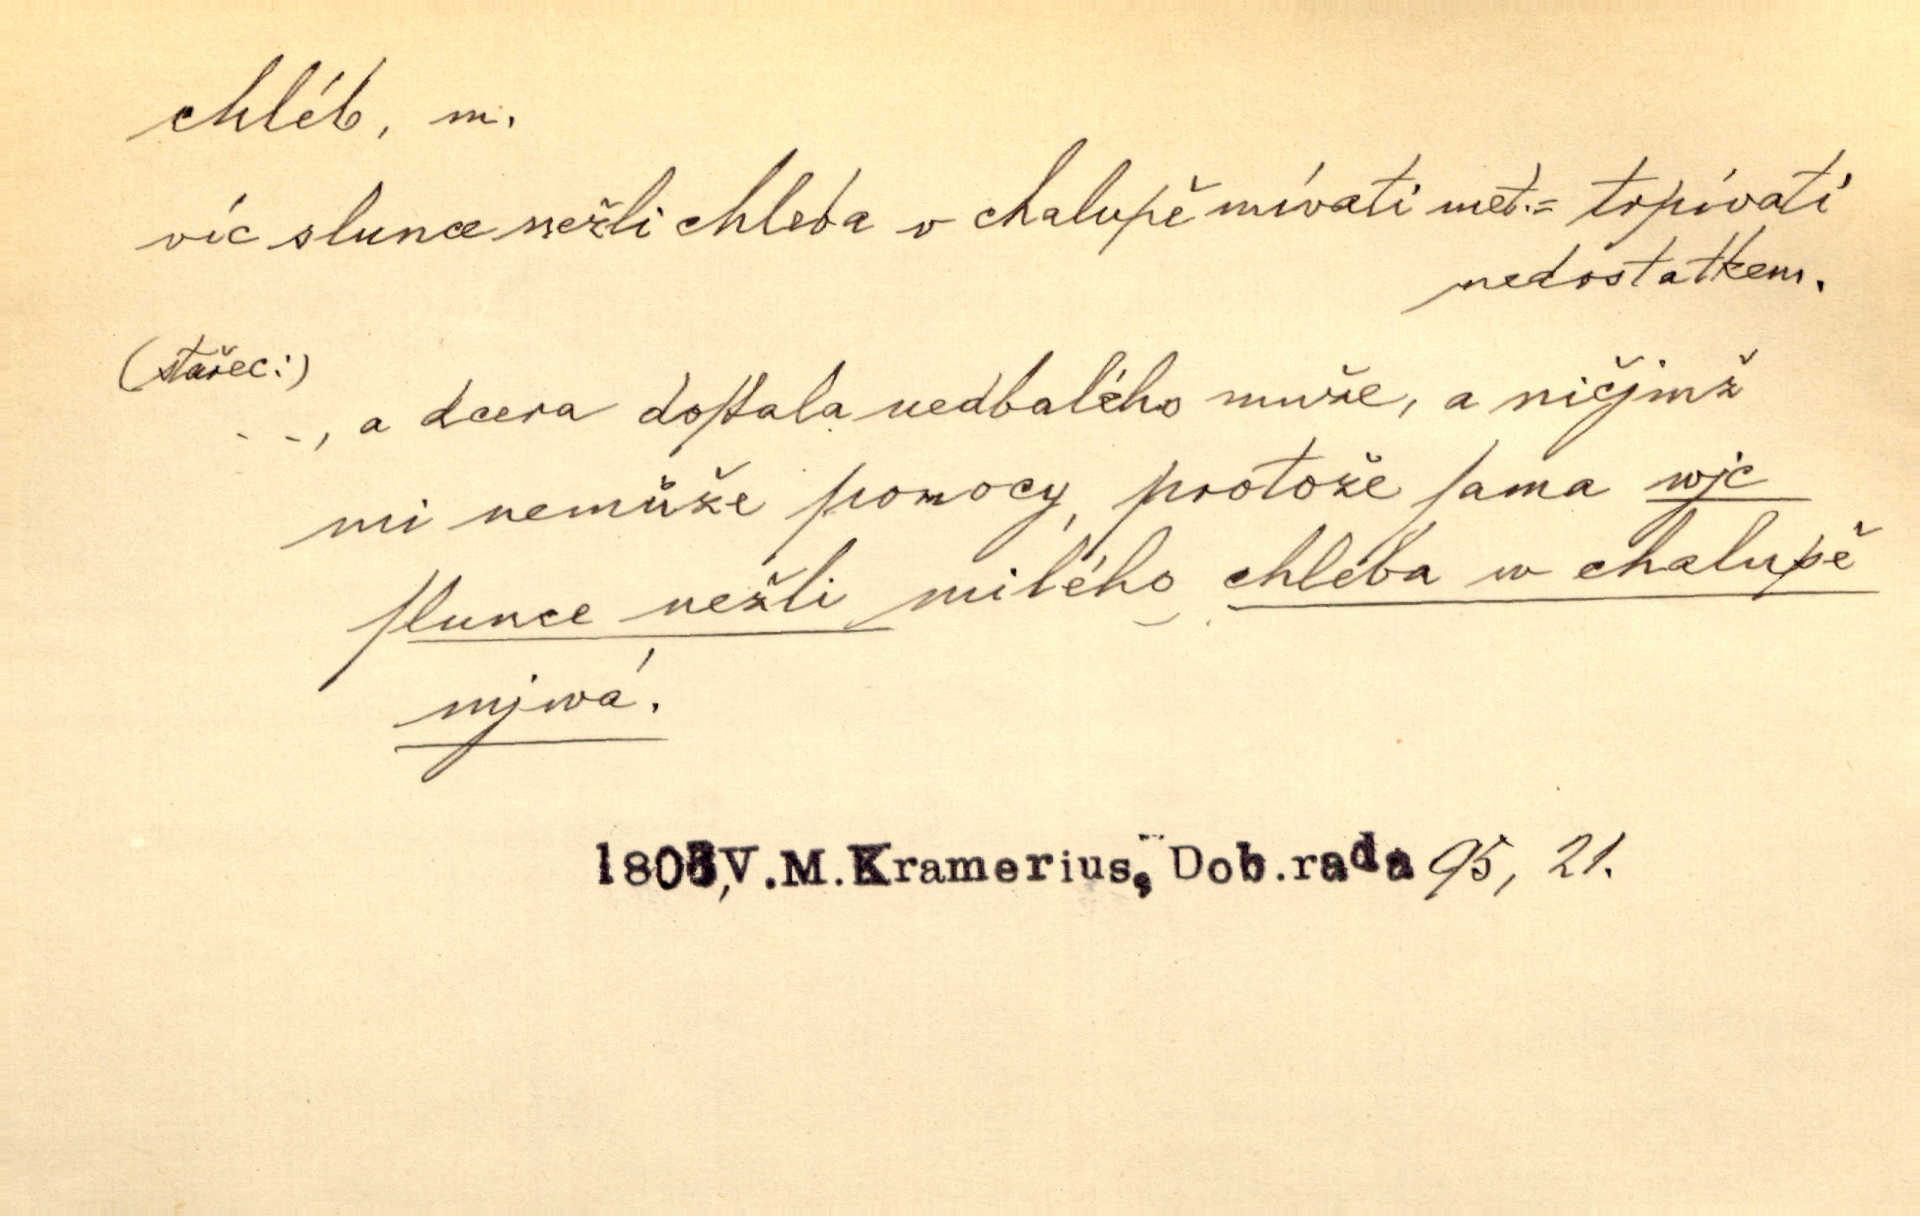 chléb, m.
víc slunce nežli chleba v chalupě mívati met. = trpívati
nedostatkem.
(stařec:)
. ., a dcera doſtala nedbalého muže, a ničjmž
mi nemůže pomocy, protože ſama wjc
ſlunce nežli milého chleba w chalupě
mjwá.
V.M.Kramerius, Dob.rada 95, 21.